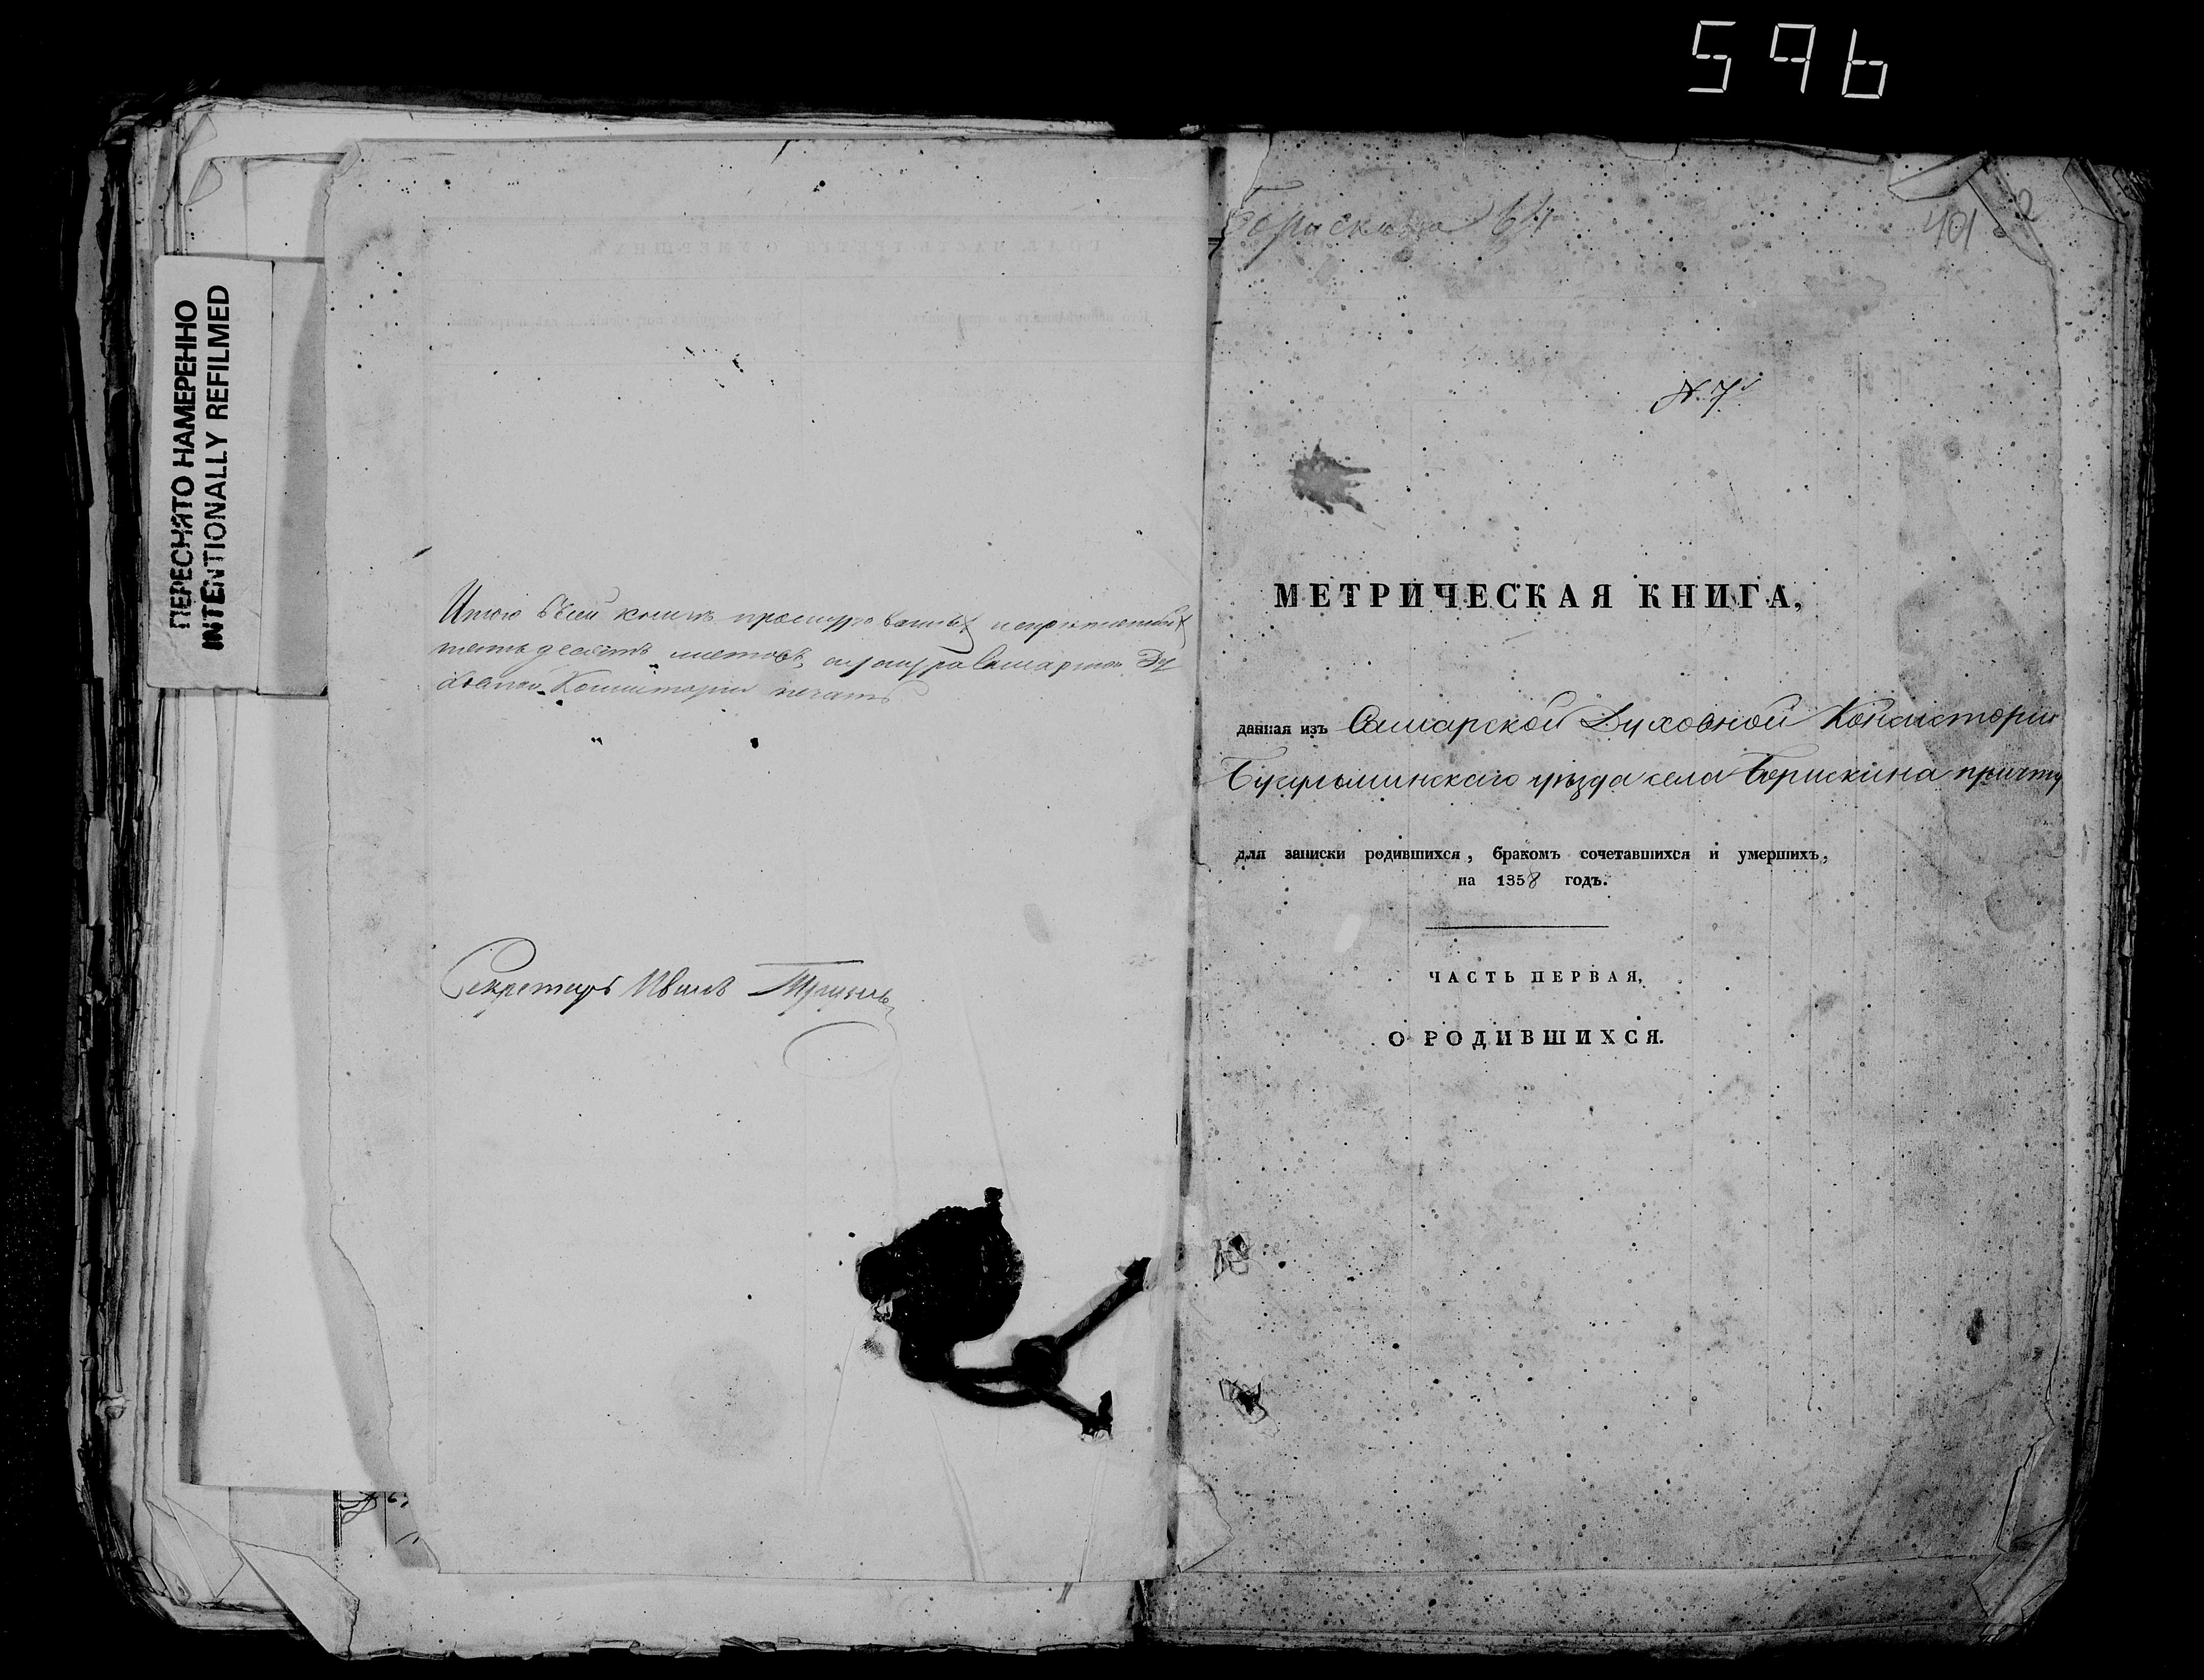 596
ПЕРЕСНЯТО НАМЕРЕННО
INTENTIONALLY REFILMED
Итого въ сей книгѣ прошнурованныхъ
листовъ,
Консисторіи печать
Секретарь Иванъ
Борискина 64
401
N. 7й
МЕТРИЧЕСКАЯ КНИГА,
данная изъ Самарской Духовной Консисторіи
Бугульминскаго уѣзда села Борискина причту
для записки родившихся, бракомъ сочетавшихся и умершихъ,
на 1858 годъ.
ЧАСТЬ ПЕРВАЯ,
О РОДИВШИХСЯ.